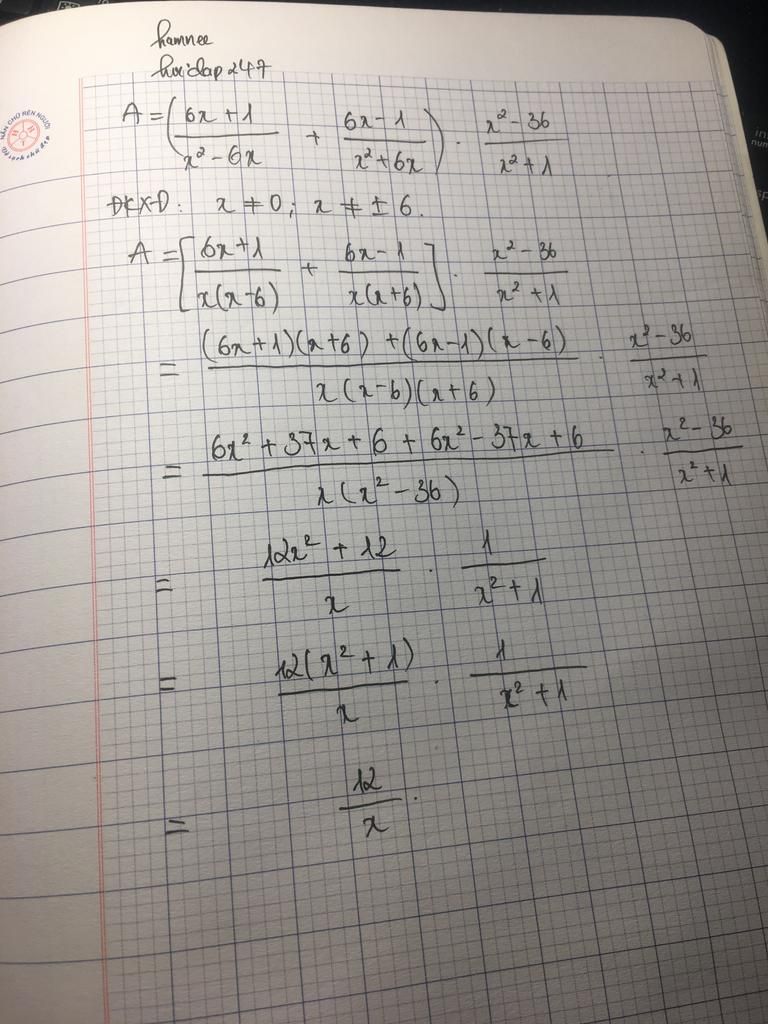 hamnee
hoidap247
A = ( (6x + 1)/(x² - 6x) + (6x - 1)/(x² + 6x) ) . (x² - 36)/(x² + 1)
ĐKXĐ: x ≠ 0; x ≠ ± 6.
A = [ (6x + 1)/(x(x - 6)) + (6x - 1)/(x(x + 6)) ] . (x² - 36)/(x² + 1)
= ((6x + 1)(x + 6) + (6x - 1)(x - 6))/(x(x - 6)(x + 6)) . (x² - 36)/(x² + 1)
= (6x² + 37x + 6 + 6x² - 37x + 6)/(x(x² - 36)) . (x² - 36)/(x² + 1)
= (12x² + 12)/x . 1/(x² + 1)
= (12(x² + 1))/x . 1/(x² + 1)
= 12/x .